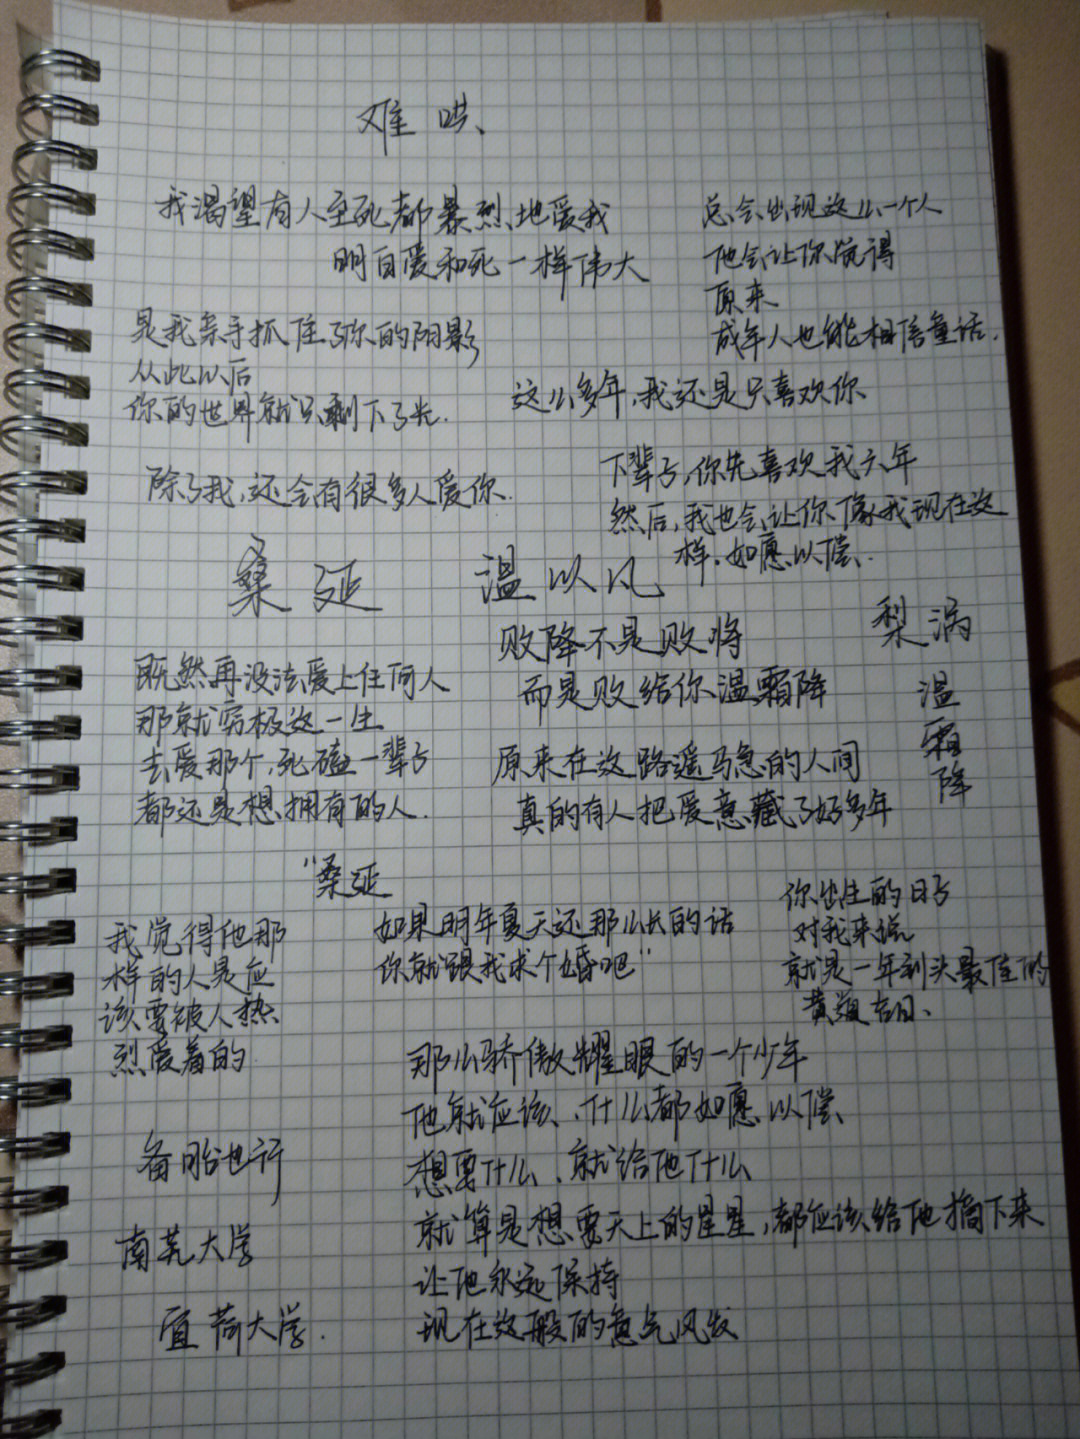 难哄、
我渴望有人至死都暴烈地爱我
明白爱和死一样伟大
总会出现这么一个人
他会让你觉得
原来
成年人也能相信童话.
是我亲手抓住了你的阴影
从此以后
你的世界就只剩下了光.
这么多年,我还是只喜欢你
除了我,还会有很多人爱你.
下辈子,你先喜欢我六年
然后,我也会让你像我现在这
样、如愿以偿.
桑延
温以凡
败降不是败将
而是败给你温霜降
梨涡
温霜降
既然再没法爱上任何人
那就穷极这一生
去爱那个,死磕一辈子
都还是想拥有的人.
原来在这路遥马急的人间
真的有人把爱意藏了好多年
"桑延
如果明年夏天还那么长的话
你就跟我求个婚吧"
你出生的日子
对我来说
就是一年到头最佳的
黄道吉日、
我觉得他那
样的人是应
该要被人热
烈爱着的
那么骄傲耀眼的一个少年
他就应该、什么都如愿以偿、
想要什么、就给他什么
就算是想要天上的星星,都应该给他摘下来
让他永远保持
现在这般的意气风发
备胎也行
南芜大学
宜荷大学.